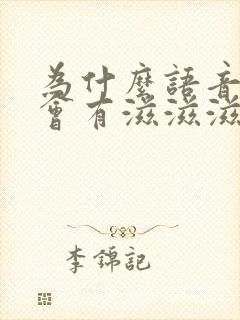 為什麼語音
會有滋滋滋
李錦記